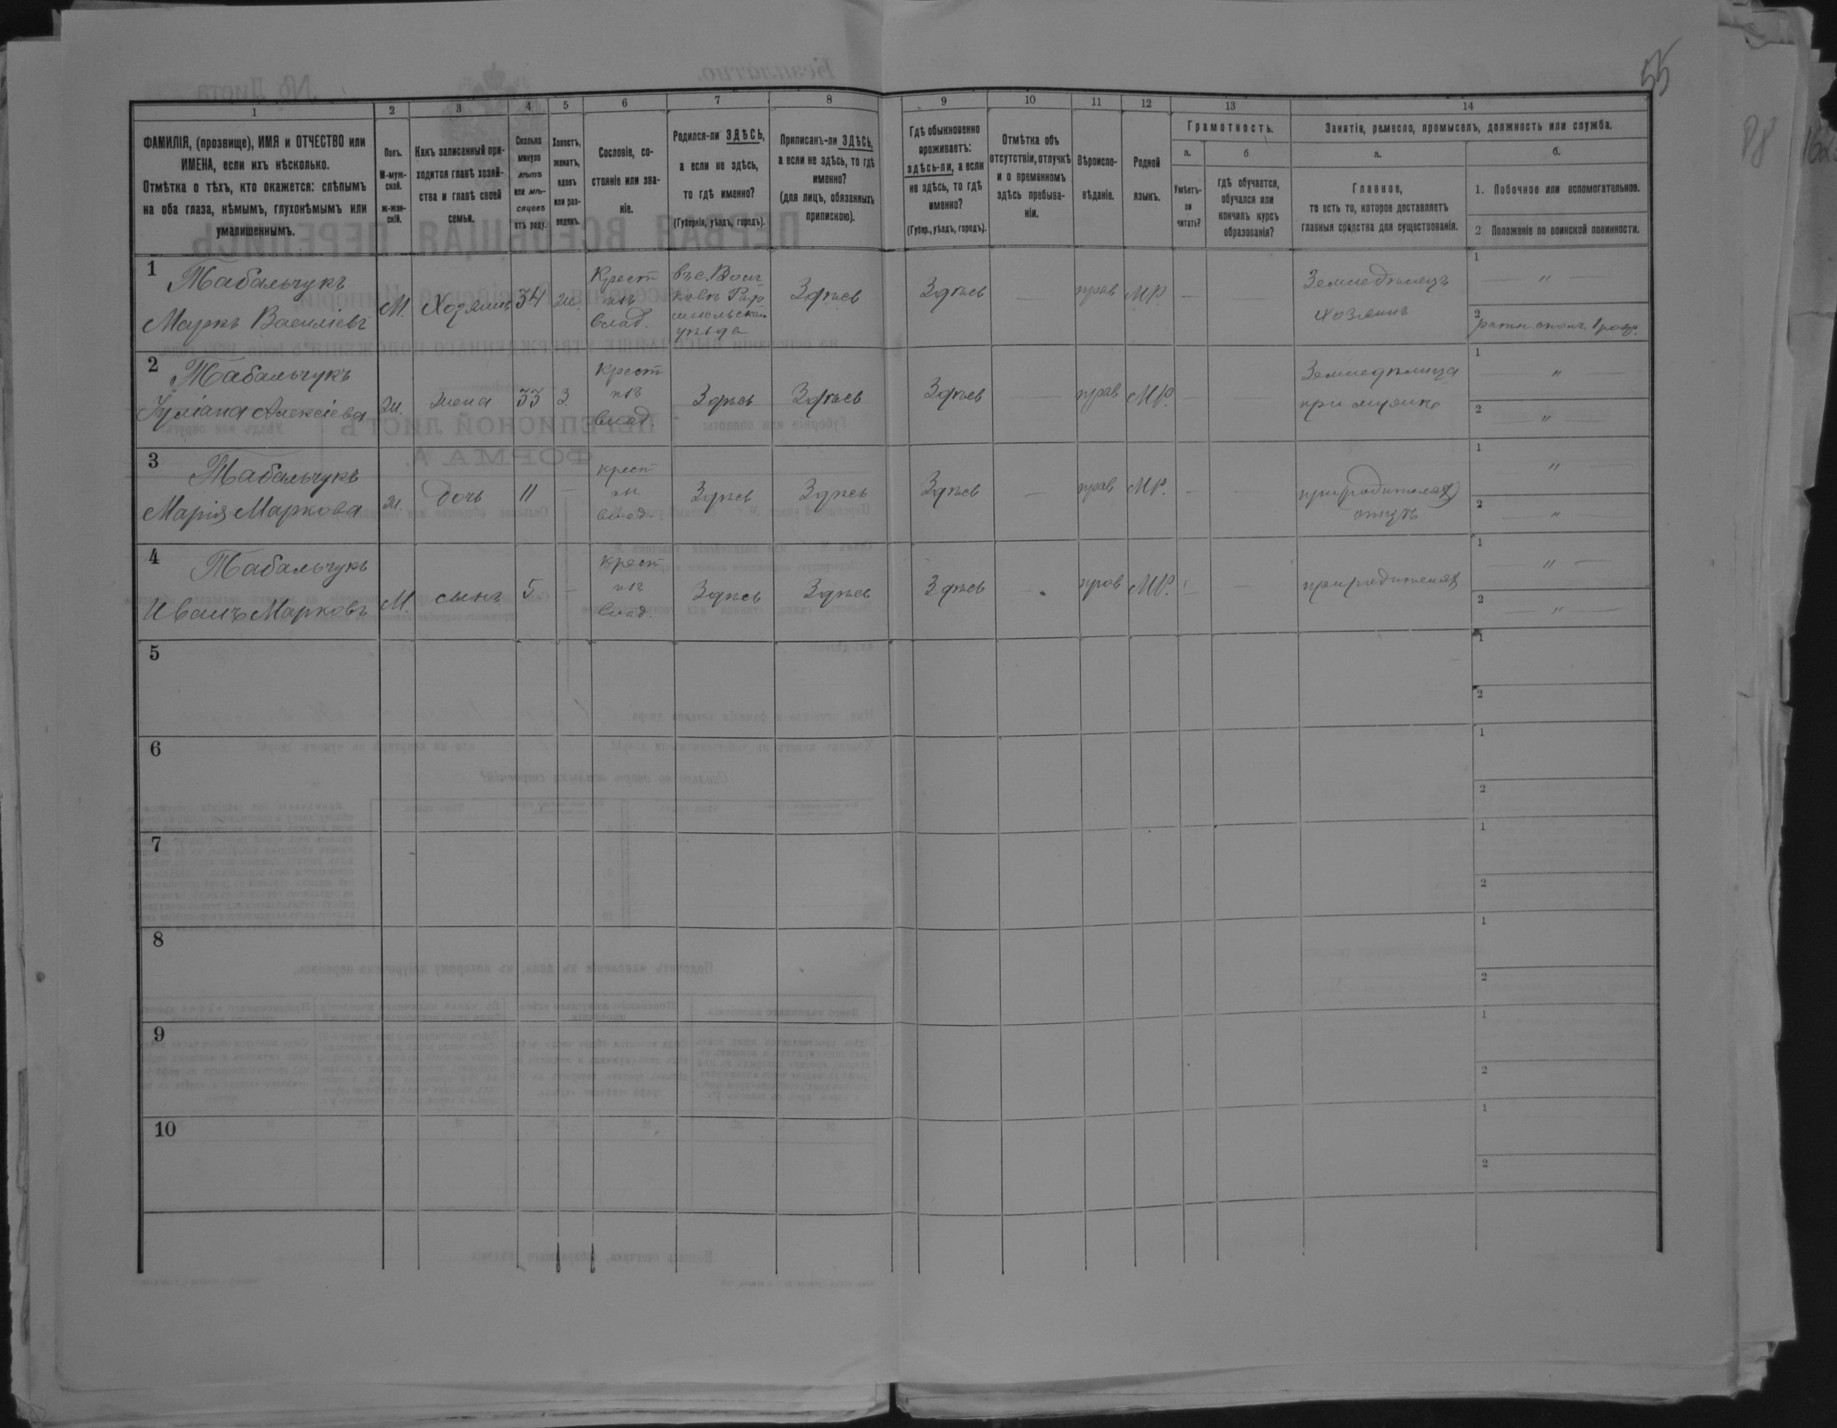 55
1
2
3
4
5
6
7
8
9
10
11
12
13
14
ФАМИЛІЯ, (прозвище), ИМЯ и ОТЧЕСТВО или
ИМЕНА, если ихъ нѣсколько.
Отмѣтка о тѣхъ, кто окажется: слѣпымъ
на оба глаза, нѣмымъ, глухонѣмымъ или
умалишеннымъ.
Полъ.
М-муж-
ской.
ж-жен-
скій.
Какъ записанный при-
ходится главѣ хозяй-
ства и главѣ своей
семьи.
Сколько
минуло
лѣтъ
или мѣ-
сяцевъ
отъ роду.
Холостъ,
женатъ,
вдовъ
или раз-
веденъ.
Сословіе, со-
стояніе или зва-
ніе.
Родился-ли ЗДѢСЬ,
а если не здѣсь,
то гдѣ именно?
(Губернія, уѣздъ, городъ).
Приписанъ-ли ЗДѢСЬ,
а если не здѣсь, то гдѣ
именно?
(для лицъ, обязанныхъ
припискою).
Гдѣ обыкновенно
проживаетъ:
здѣсь-ли, а если
не здѣсь, то гдѣ
именно?
(Губер., уѣздъ, городъ).
Отмѣтка объ
отсутствіи, отлучкѣ
и о временномъ
здѣсь пребыва-
ніи.
Вѣроиспо-
вѣданіе.
Родной
языкъ.
Грамотность.
а.
б
Умѣетъ-
ли
читать?
гдѣ обучается,
обучался или
кончилъ курсъ
образованія?
Занятіе, ремесло, промыселъ, должность или служба.
а.
б.
Главное,
то есть то, которое доставляетъ
главныя средства для существованія.
1. Побочное или вспомогательное.
2 Положеніе по воинской повинности.
1
Табальчукъ
Маркъ Василіевъ
М.
Хозяинъ
34
ж.
Крест
изъ
влад.
въ с.
уѣзда
Здѣсь
Здѣсь
—
прав
МР.
—
—
Земледѣлецъ
хозяинъ
1
— " —
2
2
Табальчукъ
Алексіева
ж.
жена
33
З
Крест
изъ
влад.
Здѣсь
Здѣсь
Здѣсь
—
прав
МР.
—
—
Земледѣлица
при мужѣ
1
— " —
2
— " —
3
Табальчукъ
Марія Маркова
ж.
дочь
11
—
крест
изъ
влад.
Здѣсь
Здѣсь
Здѣсь
—
прав
МР.
—
—
при родителяхъ
1
"
2
— " —
4
Табальчукъ
Иванъ Марковъ
М.
сынъ
5
—
Крест
изъ
влад.
Здѣсь
Здѣсь
Здѣсь
—
прав
МР.
—
—
при родителяхъ
1
— " —
2
— " —
5
1
2
6
1
2
7
1
2
8
1
2
9
1
2
10
1
2